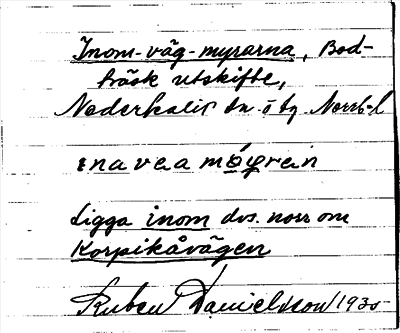 Inom-väg-myrarna, Bod-
träsk utskifte,
Nederkalix sn o tg Norrb. l
ınavɛa møyrɐin
Ligga inom dvs. norr om
Korpikåvägen
Ruben Danielsson 1935